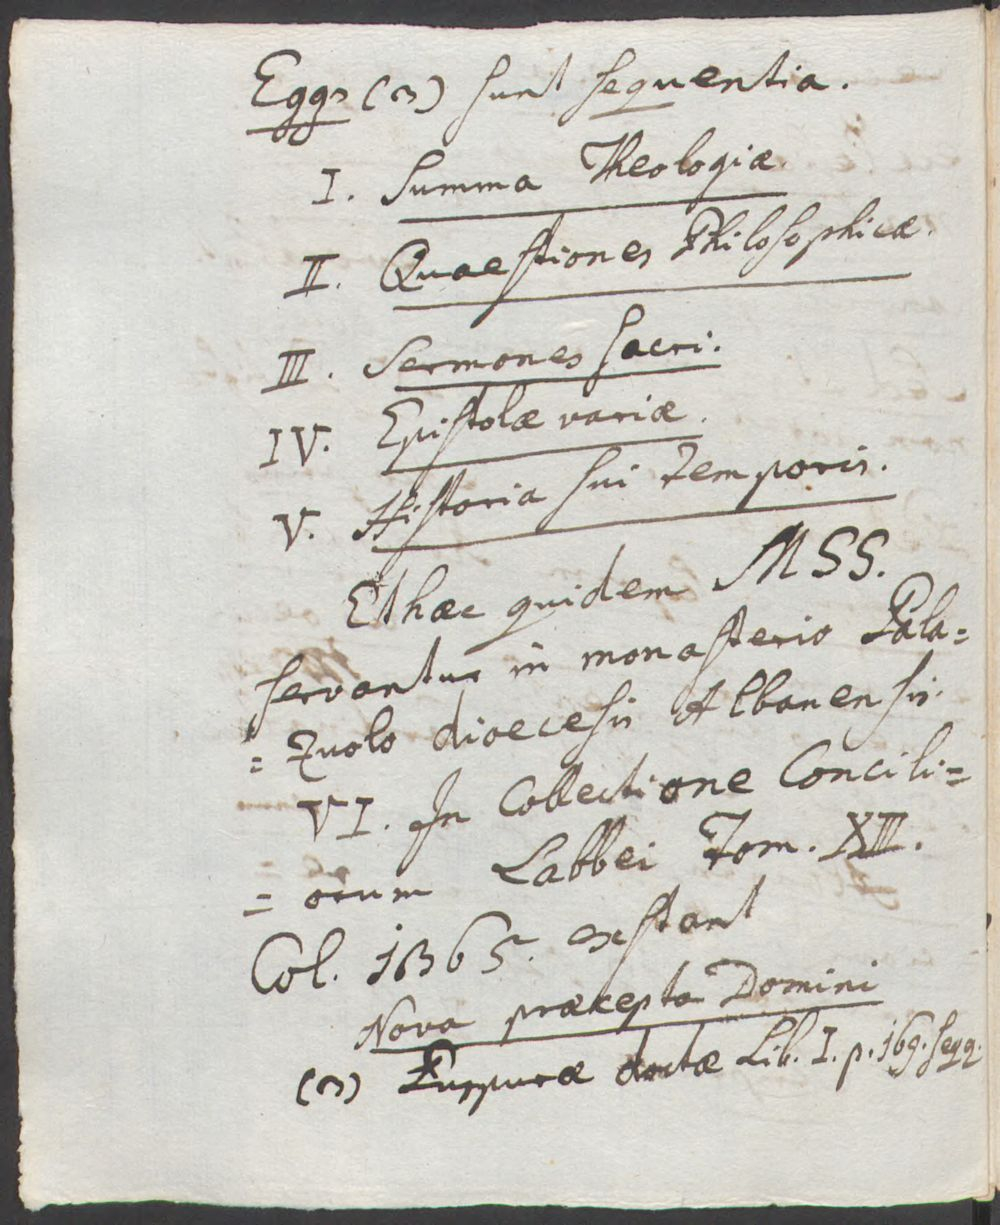 Eggs (n) sunt sequentia.
I. Summa Theologiæ.
II. Quaestiones Philosophicæ.
III. Sermones sacri.
IV. Epistolæ variæ.
V. Historia sui temporis.
Et hæc quidem MSS.
servantur in monasterio Pala=
=zuolo dioecesis Albanensis.
VI. In Collectione Concili=
=orum Labbei Tom. XIII.
Col. 1365. exstant
Nova præcepta Domini
(n) Purpuræ doctæ Lib. I. p. 169. seqq.